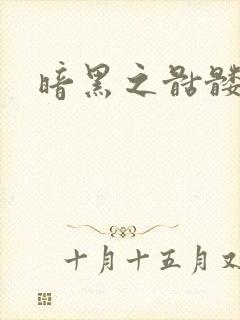 暗黑之骷髅
十月十五月又